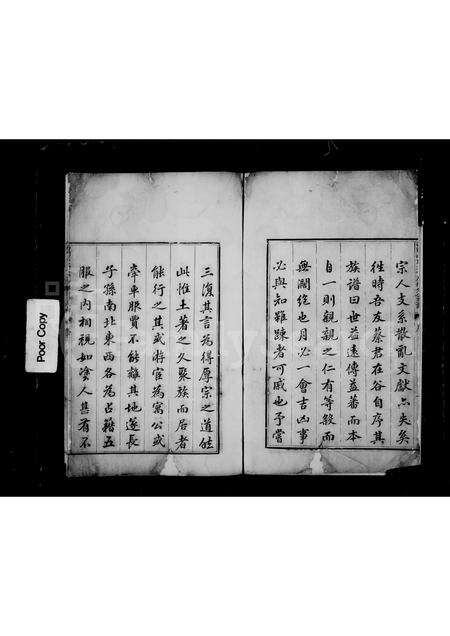 宗人文系散亂文獻亡失矣
往時吾友蔡君在谷自序其
族譜曰世益遠傳益蕃而本
自一則親親之仁有等殺而
無閒絕也月必一會吉凶事
必與知雖踈者可戚也予嘗
三復其言為得厚宗之道然
此惟土著之久聚族而居者
能行之其或游官為寓公或
牽車服賈不能離其地遂長
子孫南北東西各為占籍五
服之內相視如塗人甚有不
Poor Copy